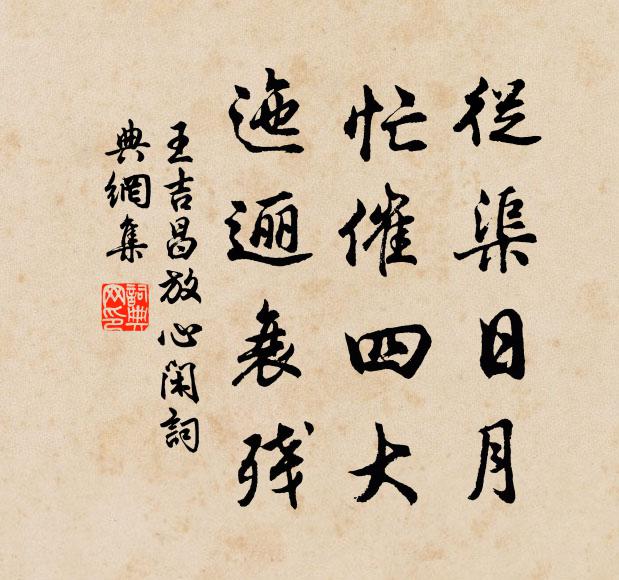 從渠日月
忙催四大
迤逦衰殘
王吉昌放心閑詞
典網集
詞典
网印